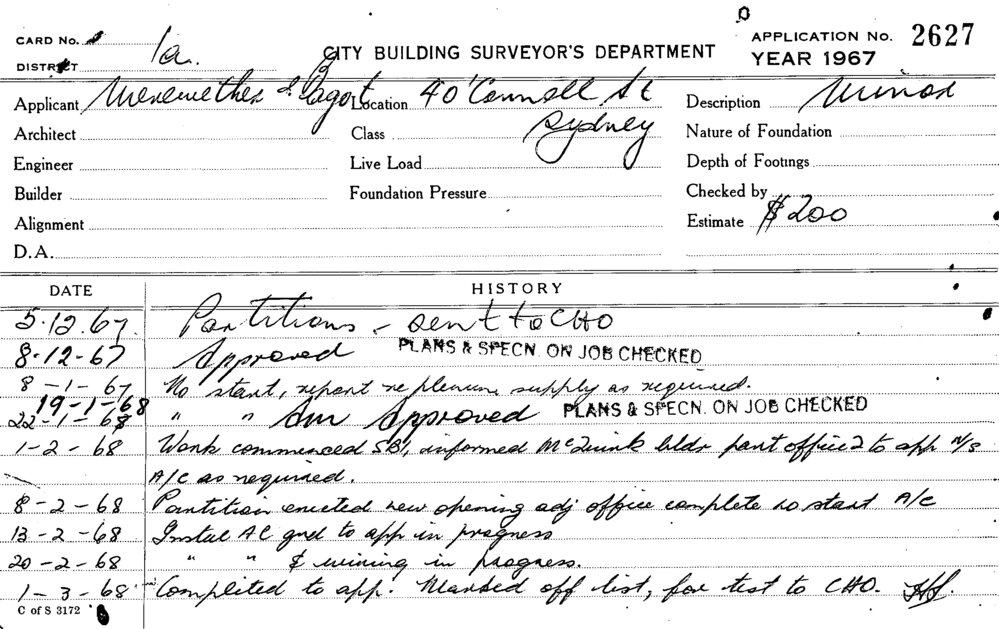 CARD No.
DISTRICT 1a.
CITY BUILDING SURVEYOR'S DEPARTMENT
APPLICATION No. 2627
YEAR 1967
Applicant Merewether & Bagot Location 40'Connell St Description Minor
Architect Class Sydney Nature of Foundation
Engineer Live Load Depth of Footings
Builder Foundation Pressure Checked by
Alignment Estimate $200
D.A.
DATE HISTORY
5.12.67 Partitions - sent to CHO
8-12-67 Approved PLANS & SPECN. ON JOB CHECKED
8-1-67 No start, report re plenum supply as required.
19-1-68 Am Approved PLANS & SPECN. ON JOB CHECKED
22-1-68 " "
1-2-68 Work commenced SBI, informed bldr part office 2 to app N/S
A/C as required.
8-2-68 Partition erected new opening adj office complete no start A/C
13-2-68 Instal AC to app in progress
20-2-68 " " & wiring in progress.
1-3-68 Complited to app. Marked off list, for test to CHO.
C of S 3172